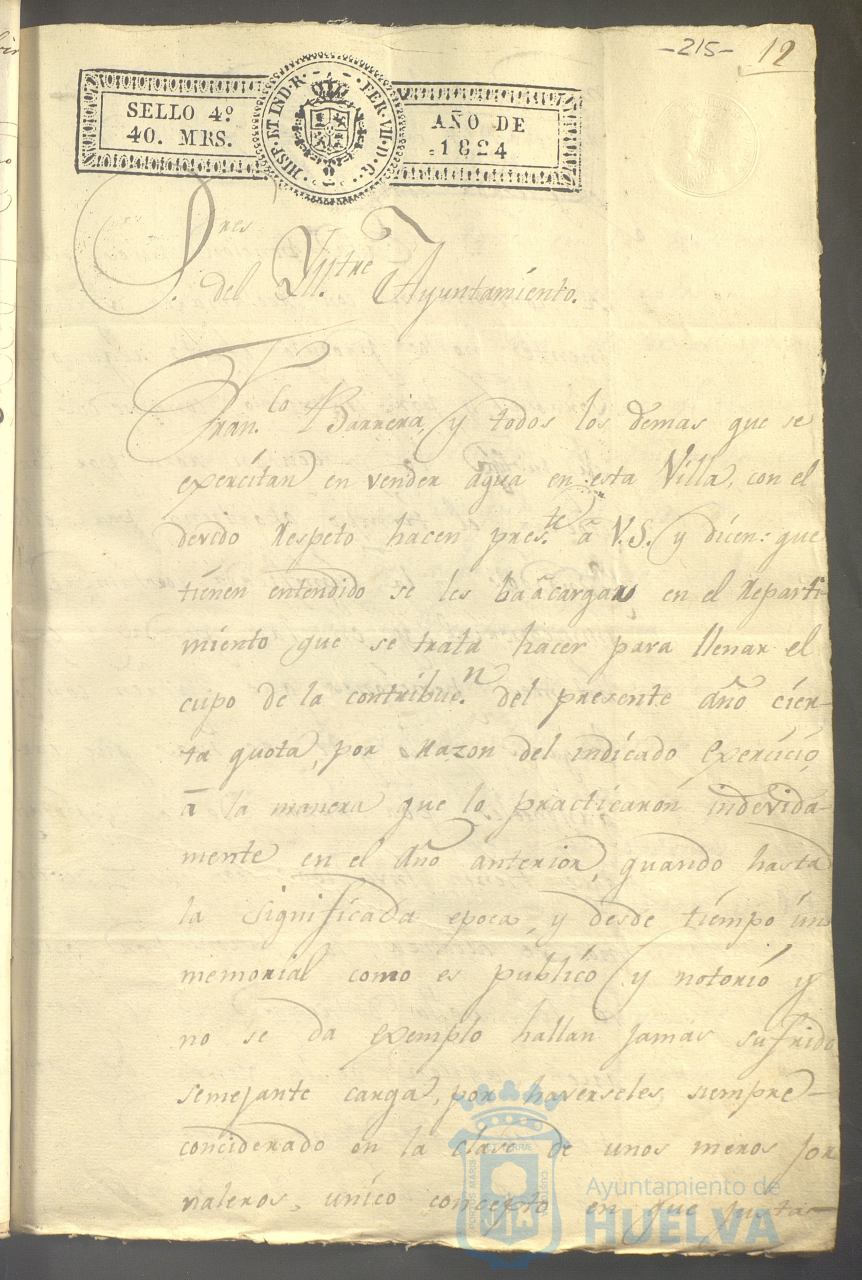 -215- 12
SELLO 4º
40. MRS.
HISP. ET IND. R. FER. VII. D. G.
AÑO DE
1824
S.res
del Yll.tre Ayuntamiento.
Fran.co Barrera, y todos los demas que se
exercitan en vender agua en esta Villa, con el
devido Respeto hacen pres.te a V.S. y dicen: que
tienen entendido se les ba a cargar en el Reparti-
miento que se trata hacer para llenar el
cupo de la contribuc.n del presente año cier-
ta quota, por Razon del indicado exercicio,
a la manera que lo practicaron indevida-
mente en el año anterior, quando hasta
la significada epoca, y desde tiempo un
memorial como es publico y notorio y
no se da exemplo hallan jamas sufrido
semejante carga, por haverseles siempre
conciderado en la clase de unos meros jor
naleros, unico concepto en que justa-
Ayuntamiento de
HUELVA